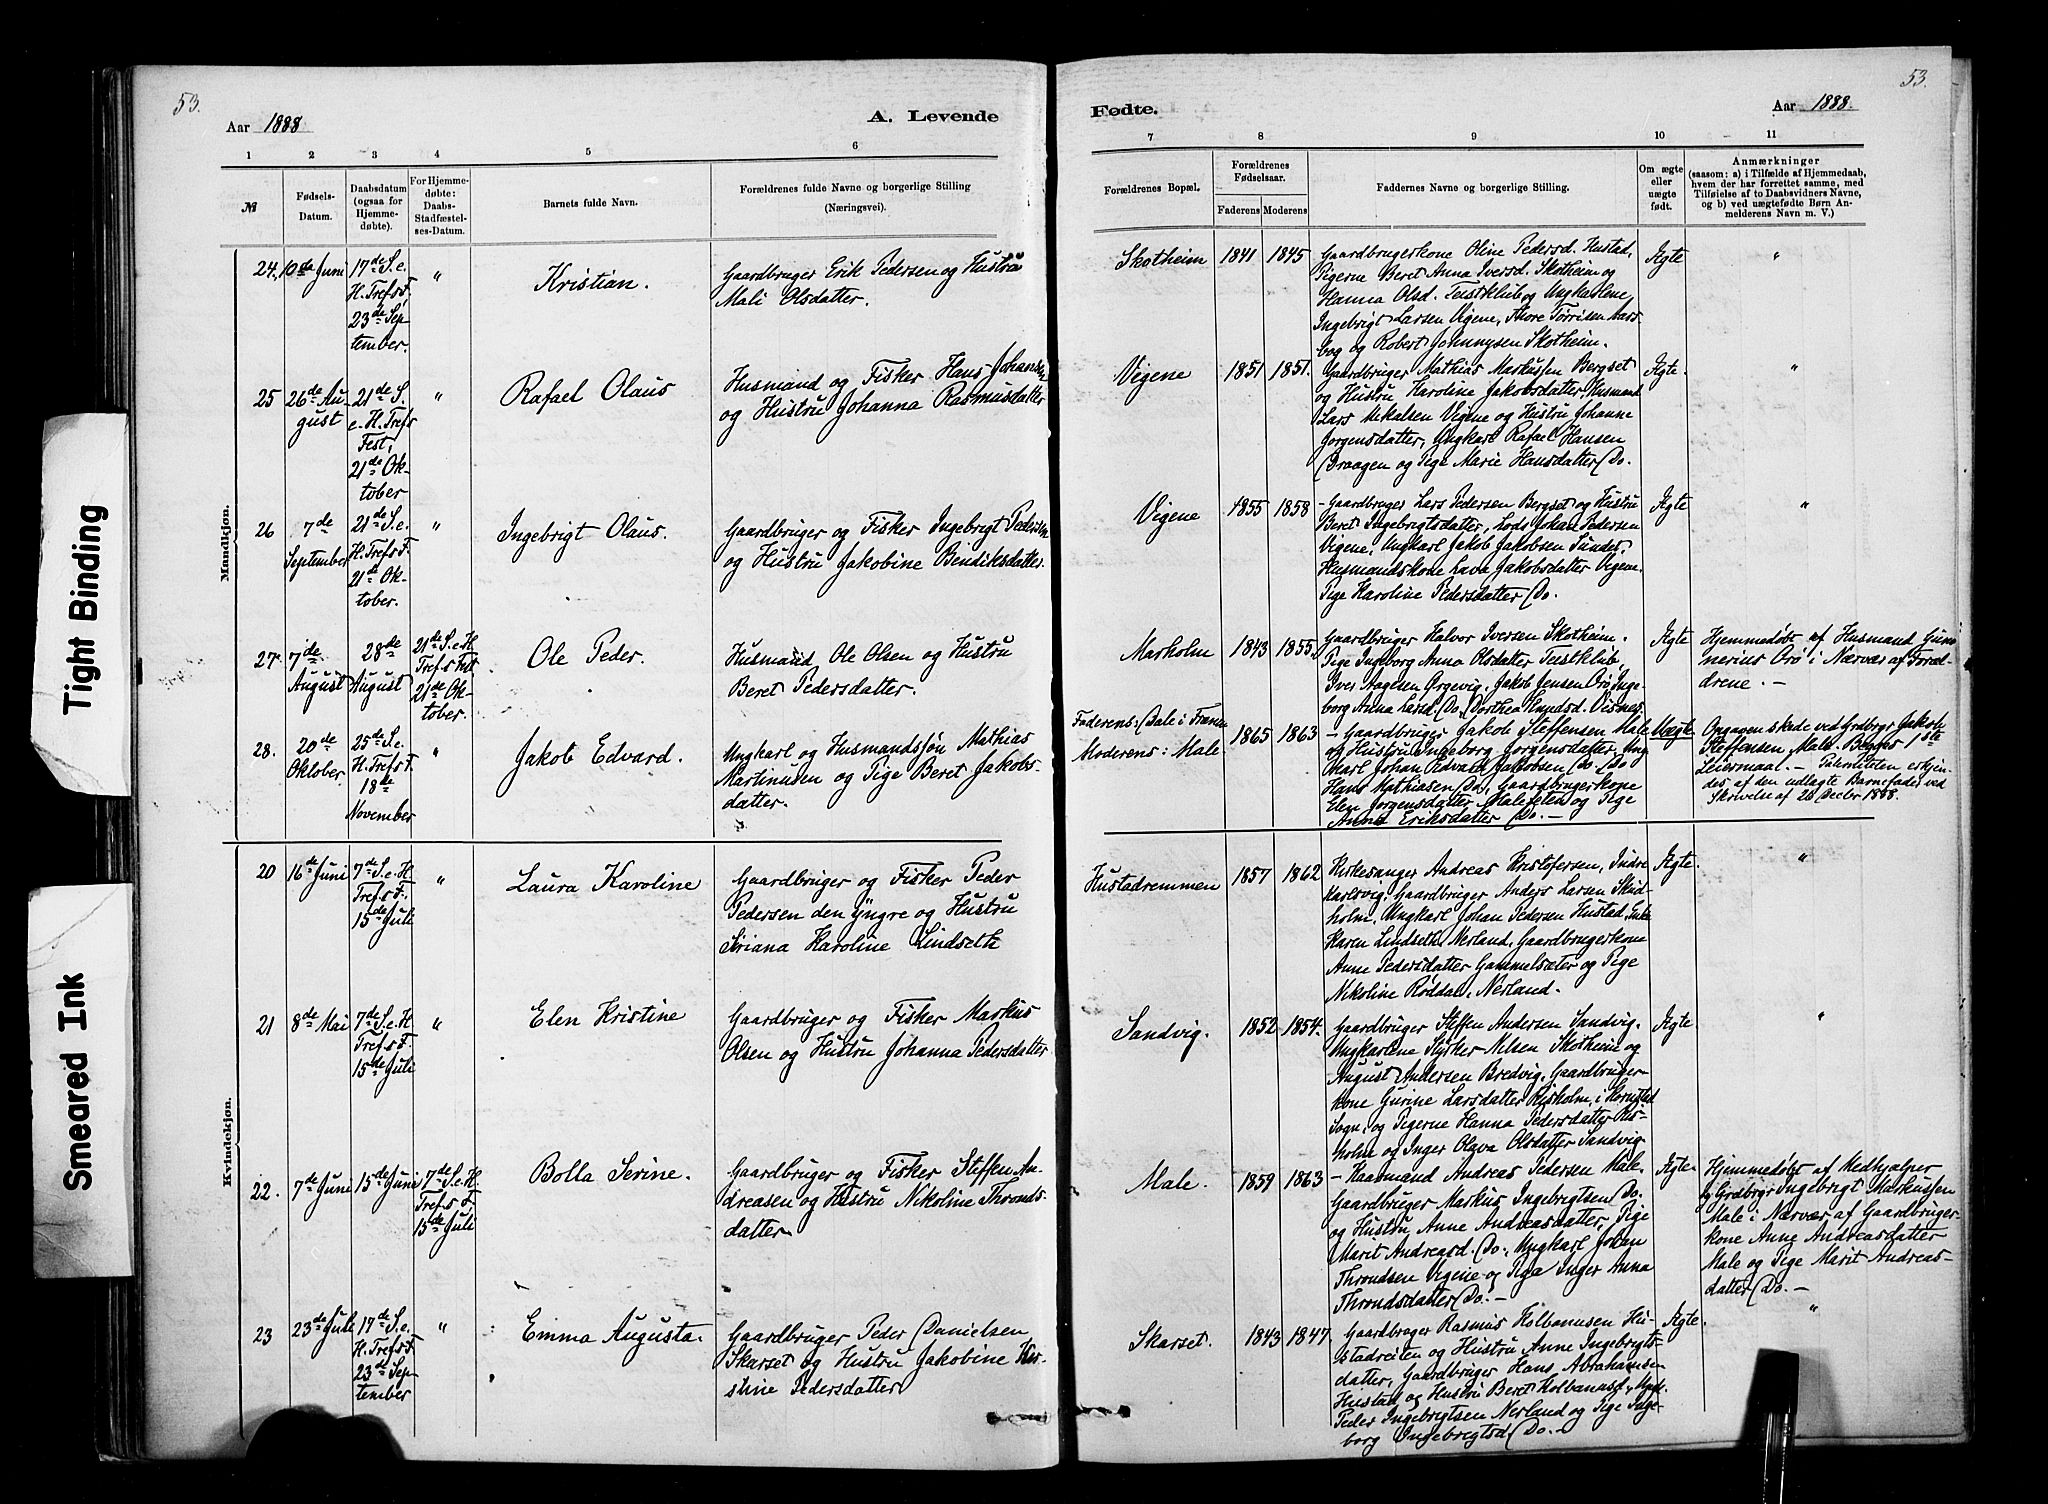 53.
53.
Aar 1888
A. Levende
Fødte.
Aar 1888.
1 2 3 4 5 6
7 8 9 10 11
№
Fødsels-
Datum.
Daabsdatum
(ogsaa for
Hjemme-
døbte).
For Hjemme-
døbte:
Daabs-
Stadfæstel-
ses-Datum.
Barnets fulde Navn.
Forældrenes fulde Navne og borgerlige Stilling
(Næringsvei).
Forældrenes Bopæl.
Forældrenes
Fødselsaar.
Faderens Moderens
Faddernes Navne og borgerlige Stilling.
Om ægte
eller
uægte
født.
Anmærkninger
(saasom: a) i Tilfælde af Hjemmedaab,
hvem der har forrettet samme, med
Tilføielse af to Daabsvidners Navne,
og b) ved uægtefødte Børn An-
melderens Navn m. V.)
Tight Binding
Smeared Ink
Mandkjøn.
24. 10de Juni
17de S. e.
H. Tref s F.
23de Sep
tember.
"
Kristian.
Gaardbruger Erik Pedersen og Hustru
Mali Olsdatter.
Skotheim 1841 1845
Gaardbrugerkone Oline Pedersd. Hustad,
Pigerne Beret Anna Iversd. Skotheim og
Hanna Olsd. Teistklub og Ungkarlene,
Ingebrigt Larsen Vigene, Thore Törrisen Aars-
bog og Robert Johnnysen Skotheim.
Ægte
"
25 26de Au-
gust
21de S.
e. H. Trefs
Fest,
21de Ok-
tober
"
Rafael Olaus
Husmand og Fisker Hans Johansen
og Hustru Johanna Rasmusdatter
Vigene 1851 1851.
Gaardbruger Mathias Markussen Bergset
og Hustru Karoline Jakobsdatter, Husmand
Lars Mikalsen Vigene og Hustru Johanne
Jorgensdatter, Ungkarl Rafael Hansen
Draagen og Pige Marie Hansdatter Do.
Ægte.
"
26 7de
September
21de S. e.
H. Tref s F.
21de Ok-
tober.
"
Ingebrigt Olaus.
Gaardbruger og Fisker Ingebrigt Pedersen
og Hustru Jakobine Bendiksdatter.
Vigene 1855 1858
- Gaardbruger Lars Pedersen Bergset og Hustru
Beret Ingebrigtsdatter, Lods Johan Pedersen
Vigene, Ungkarl Jakob Jakobsen Sundet,
Husmandskone Lava Jakobsdatter Vigene.
Pige Karoline Pedersdatter Do.
Ægte
"
27. 7de
August
28de
August
21de S. e H.
Tref s Fest
21de Ok-
tober.
Ole Peder.
Husmand Ole Olsen og Hustru
Beret Pedersdatter.
Marholm 1843 1855.
Gaardbruger Halvor Iversen Skotheim.
Pige Ingeborg Anna Olsdatter Teistklub,
Iver Aagesen Ørgevig, Jakob Jensen Orö, Inge-
borg Anna Larsd. Do, Dorthea Knudsd. Visnes.
Ægte
Hjemmedøbt af Husmand Gun-
nerius Orö i Nærvær af Foræl-
drene. -
28. 20de
Oktober.
25de S. e.
H. Tref s F.
18de
November
"
Jakob Edvard.
Ungkarl og Husmandssøn Mathias
Martinusen og Pige Beret Jakobs-
datter.
Faderens: Bale i Frænen
Moderens: Male
1865 1863
- Gaardbruger Jakob Steffensen Male
og Hustru Ingeborg Jorgensdatter, Ung
karl Johan Edvard Jakobsen Do. Do
Hans Mathiasen Do, Gaardbrugerkone
Elen Jorgensdatter Malefeten og Pige
Anna Eriksdatter Do. -
Uægte
Opgaven skede ved Grdbrgr Jakob
Steffensen Male. Begges 1ste
Leiermaal. - Paterniteten erkjen-
des af den udlagte Barnefader ved
Skrivelse af 26 Decbr 1888.
Kvindekjøn.
20 16de Juni
7de S. e. H
Tref s F.
15de Juli
"
Laura Karoline
Gaardbruger og Fisker Peder
Pedersen den Yngre og Hustru
Siriana Karoline Lindseth
Hustadremmen 1857 1862
Kirkesanger Andreas Kristofersen, Indre
Karlsvig, Gaardbruger Anders Larsen Skid-
holm, Ungkarl Johan Pedersen Hustad, Enke
Karen Lindseth Nerland, Gaardbrugerkone
Anne Pedersdatter Gammelsæter og Pige
Nikoline Röddal, Nerland.
Ægte.
"
21 8de Mai
7de S. e. H
Tref s F
15de Juli
"
Elen Kristine
Gaardbruger og Fisker Markus
Olsen og Hustru Johanna Pedersdatter
Sandvig. 1852 1854.
Gaardbruger Steffen Andersen Sandvig.
Ungkarlene Styrker Nilsen Skotheim og
August Andersen Bredvig. Gaardbruger-
kone Gurine Larsdatter Risholm, i Hornstad
Sogn, og Pigerne Hanna Pedersdatter Ris-
holm og Inger Olava Olsdatter Sandvig
Ægte.
"
22. 7de Juni 15de Juni
7de S. e. H.
Tref s F
15de Juli
Bolla Serine.
Gaardbruger og Fisker Steffen An-
dreasen og Hustru Nikoline Thronds-
datter.
Male. 1859 1863
- Kaarmand Andreas Pedersen Male.
Gaardbruger Markus Ingebrigtsen Do.
og Hustru Anne Andreasdatter, Pige
Marit Andreasd. Do, Ungkarl Johan
Throndsen Vigene og Pige Inger Anna
Throndsdatter Do. -
Ægte.
Hjemmedøbt af Medhjælper
og Grdbrgr Ingebrigt Markussen
Male i Nærvær af Gaardbruger-
kone Anne Andreasdatter
Male og Pige Marit Andreas-
datter Do. -
23 23de Juli
17de S. e.
H. Tref s F
23de Sep-
tember
"
Emma Augusta.
Gaardbruger Peder Danielsen
Skarset og Hustru Jakobine Kir-
stine Pedersdatter
Skarset. 1843 1847.
Gaardbruger Rasmus Kolbanusen Hu-
stadreiten og Hustru Anne Ingebrigts-
datter, Gaardbruger Hans Abrahamsen
Hustad og Hustru Beret Kolbanusd., Ungk.
Peder Ingebrigtsen Nerland og Pige Inge-
borg Ingebrigtsd Do. -
Ægte.
"